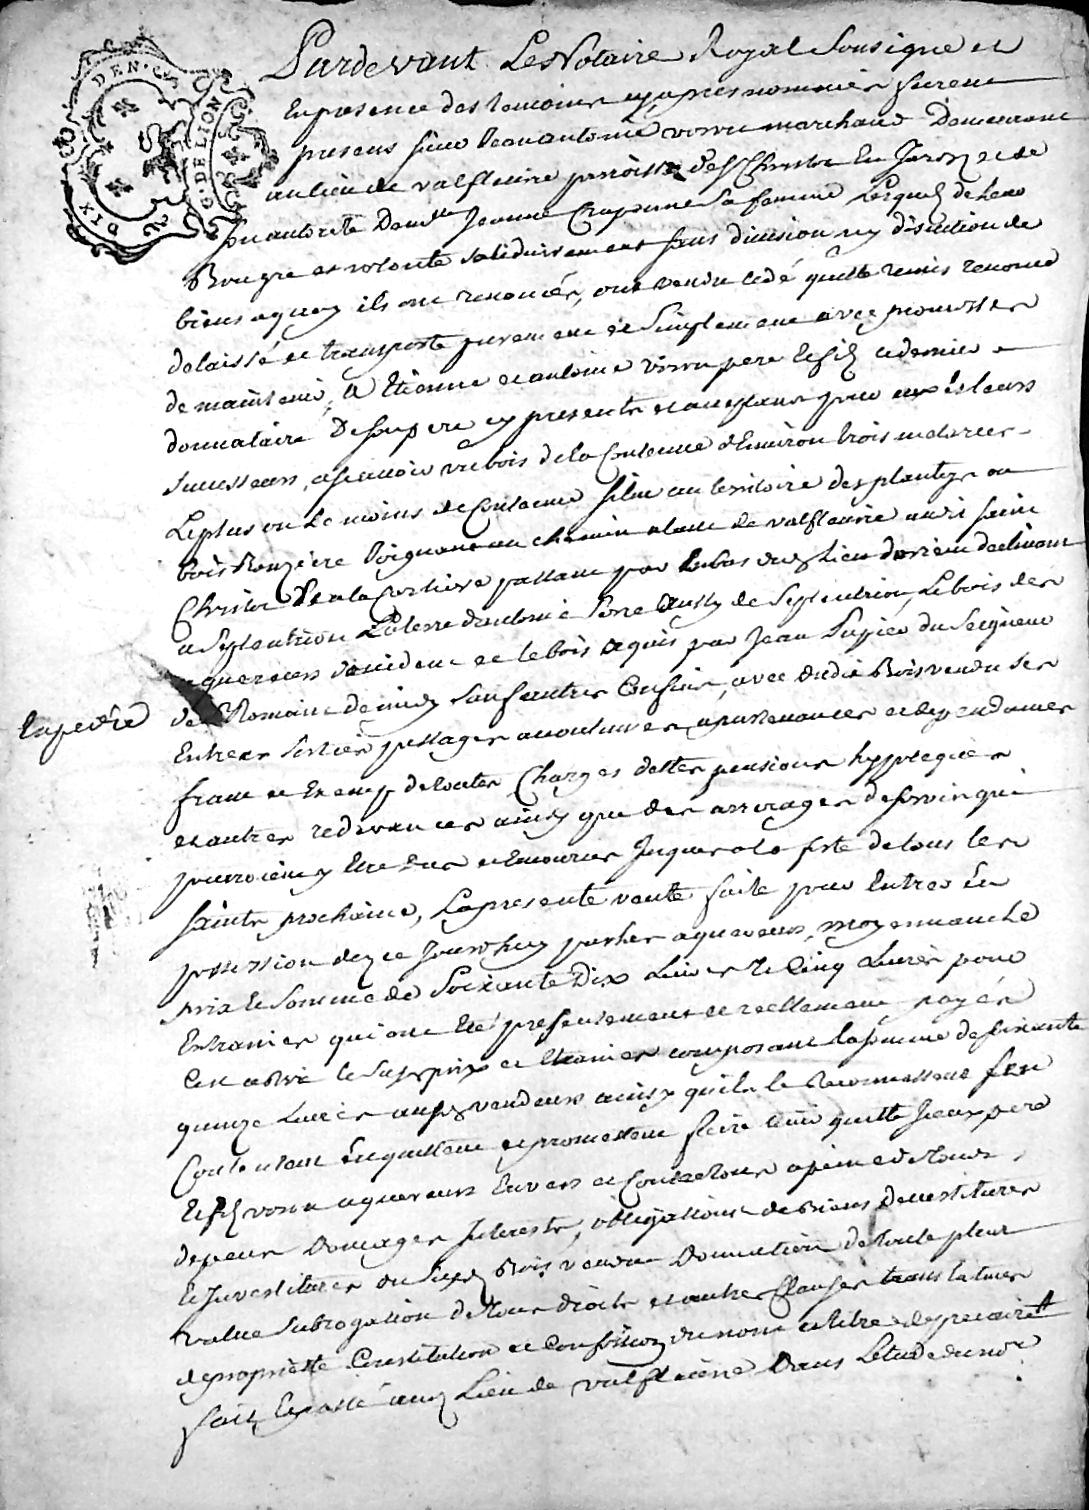 DIX DEN. G. DE LION
Pardevant Le Notaire Royal Sousigné et
En presence des temoins cy apres nommés furent
presens sieur Jean antoine viron marchand Demeurant
au lieu de valfleurie paroisse de St Christot En Jarez et de
son autorité Dem.lle Jeanne Craponne sa femme Lesquels de leur
Bon gre et volonté solidairement sans division ny discution de
biens aquoy ils ont renoncés, ont vendu cedé quitté remis renoncé
delaissé et transporté purement et simplement avec promesse
de maintenir, a Etienne et antoine viron pere et fils ce dernier
donnataire De son pere cy presents et acceptans pour eux et leurs
successeurs, ascavoir un bois de la Contenue d'Environ trois metanées
Le plus ou Le moins de Contenue situé au territoire des plantées ou
bois Rouziere Joignant au chemin alant de valfleurie audit saint
Christot a la passant par Le bas dudit lieu declinant
a Septentrion La terre d'antoine aussy de Septentrion, Le bois des
aquereurs d'occident et le bois aquis par Jean du Seigneur
de St Romain de midy sauf autres Confins, avec dudit Bois vendu ses
Entrées sorties passages apartenances et dependances
franc et Exempt de toutes Charges dettes pensions hypoteques
et autres redevances ainsy que des arrerages de servis qui
pourroient y Etre dus et Encourus Jusques a la fete de tous les
saints prochaine, La presente vente faite pour Entrer En
possession dez ce Jourd'huy par les aquereurs, moyennant Le
prix et somme de Soixante Dix Livres et Cinq Livres pour
Etrennes qui ont Eté presentement et reellement payés
C'est a dire le susd. prix et Etrennes composant La somme de soixante
quinze Livres auxd. vendeurs ainsy qu'ils le Reconnoissent s'en
Contentent En quittent et promettent faire tenir quitte Iceux pere
et fils viron aquereurs Envers et Contre tous a peine de tous
depens Domages Interests, obligations de Biens Devestitures
et Investitures du susd. Bois vendu Donnation de toute plus
value subrogation de tous droits et autres Clauses translatives
de proprieté Constitution et Confession du nom et titre de precaire
fait et passé audit Lieu de valfleurie Dans L'etude du no.re